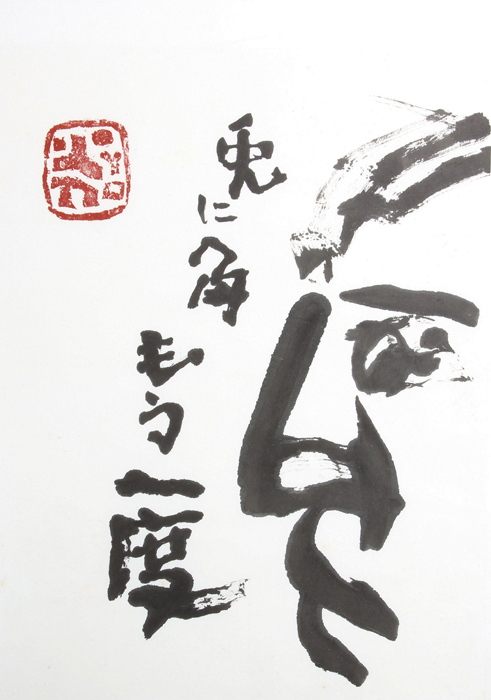 兎に角
もう一度